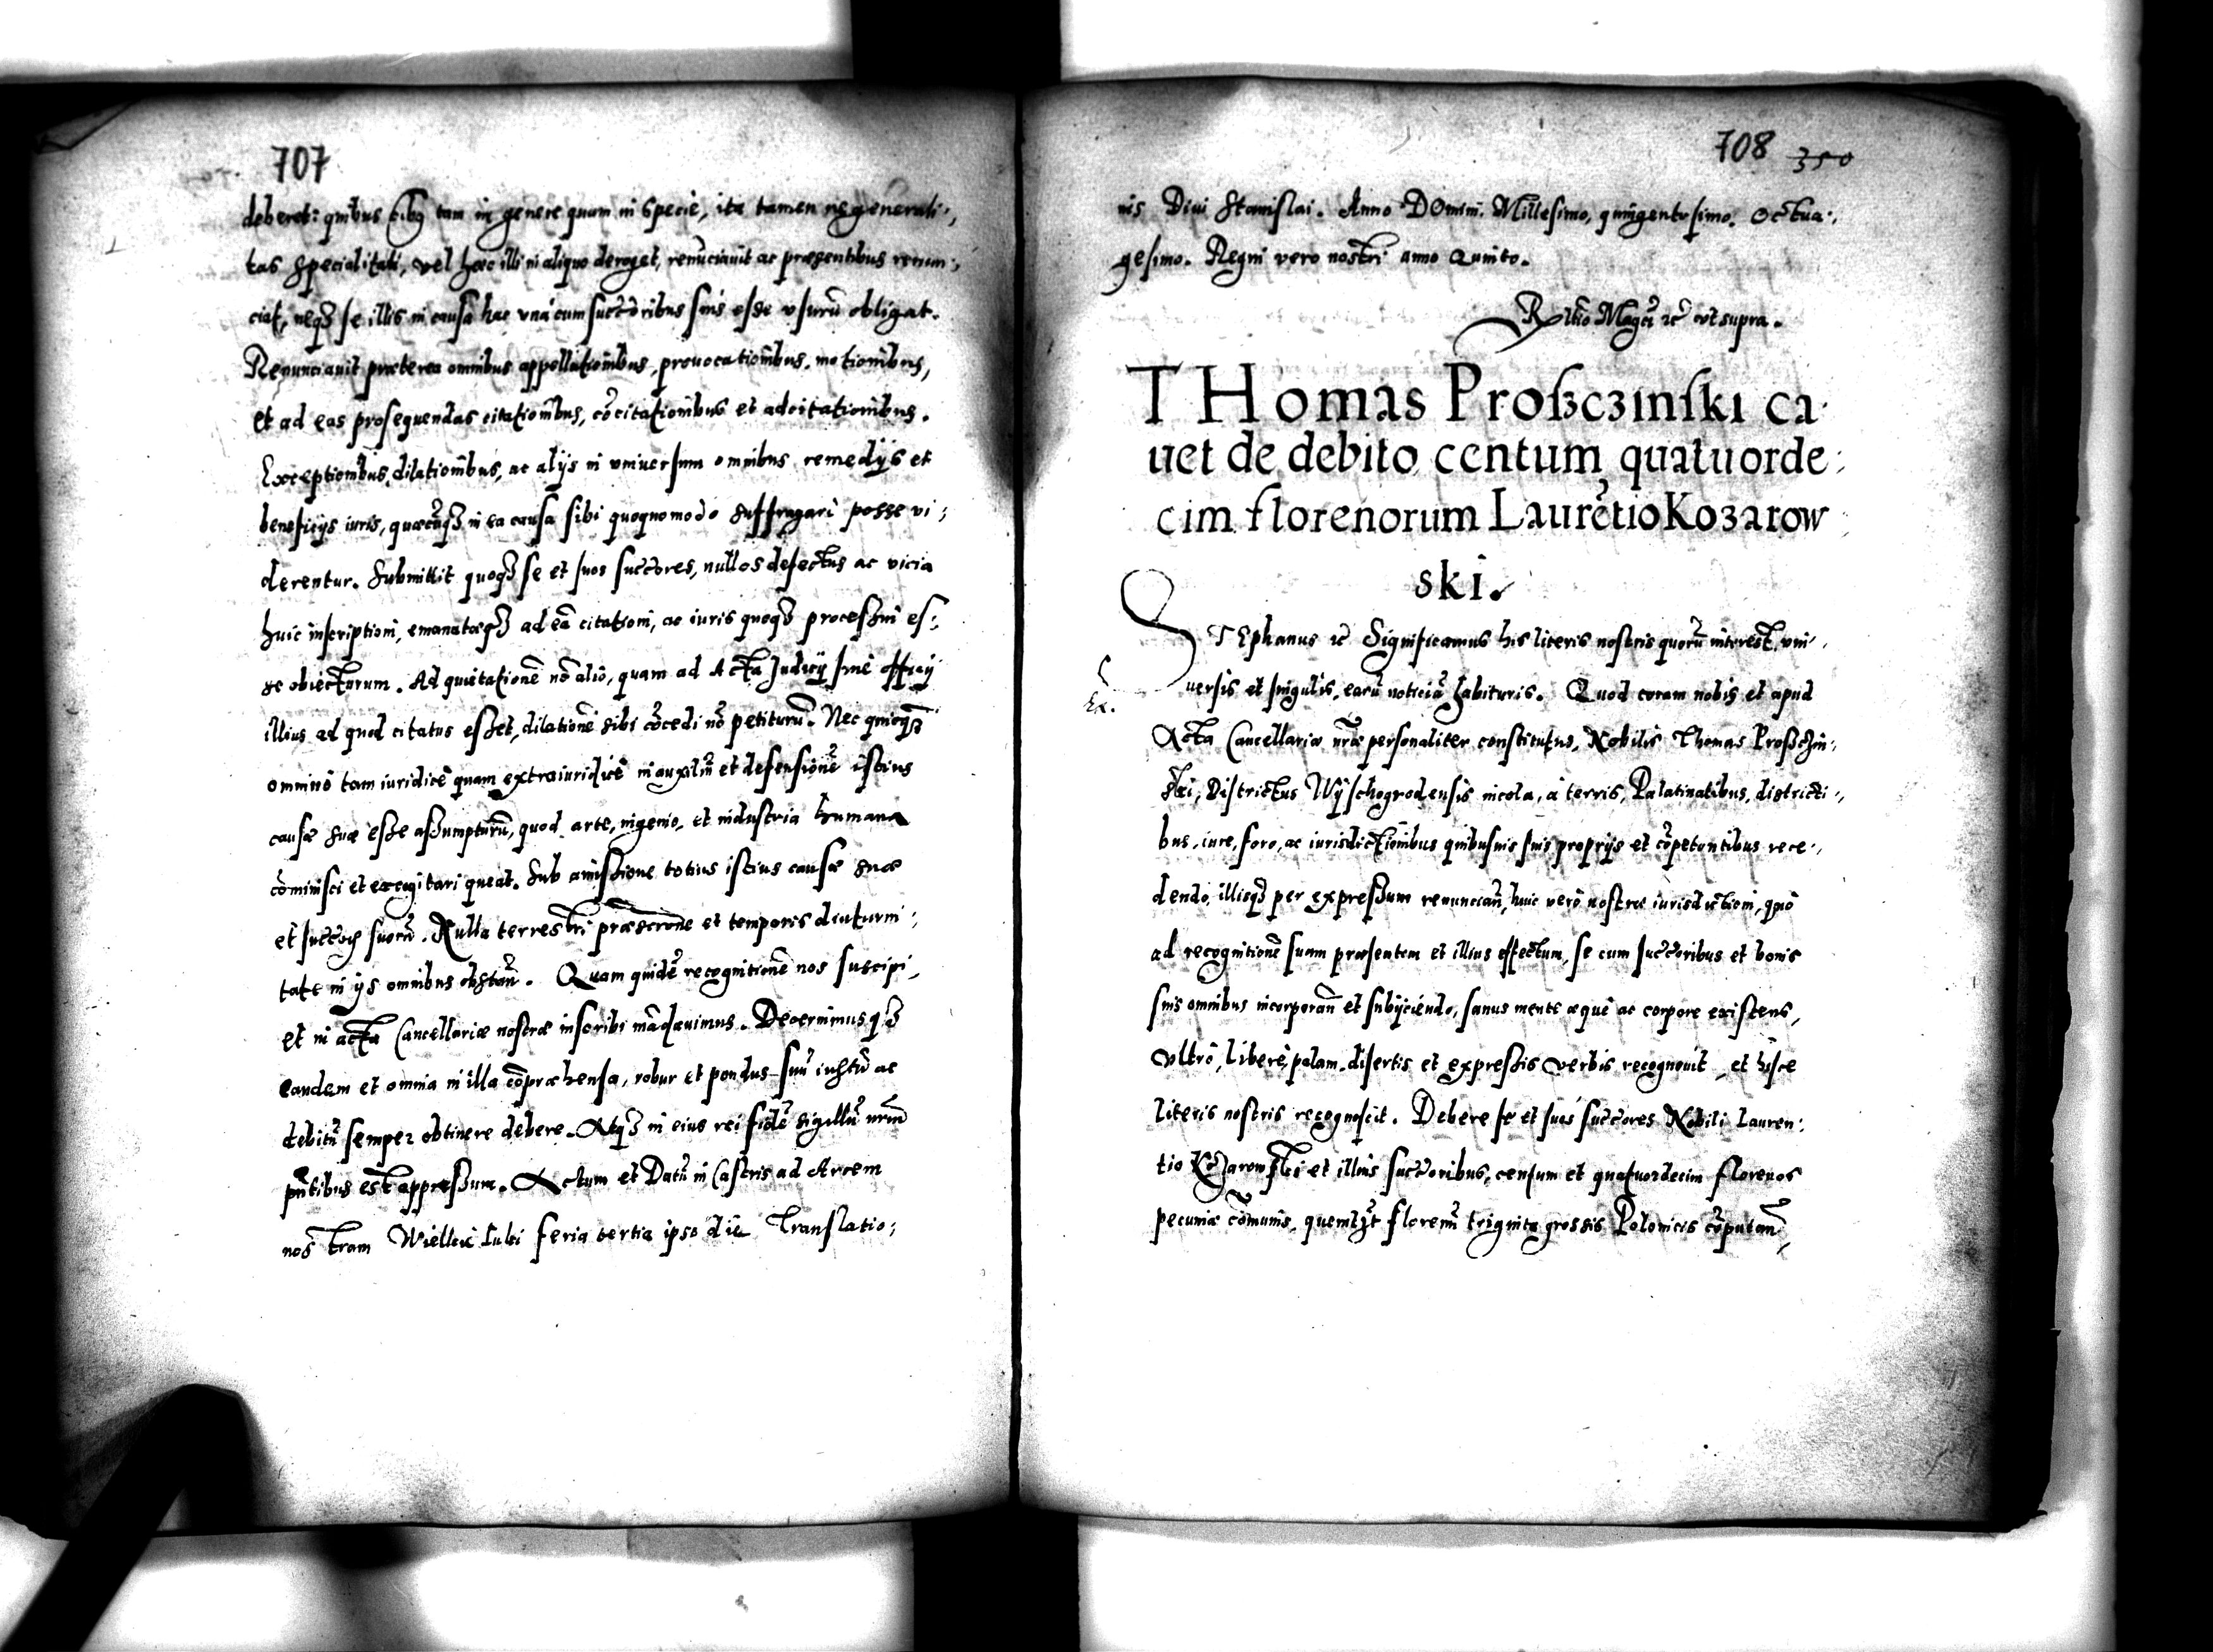 707
deberet: quibus sibi tam in genere quam in specie, ita tamen ne generali:,
tas specialitati, vel haec illi in aliquo deroget, renũciauit ac praesentibus renun:,
ciat, neqꝫ se illis in causa hac vnà cum succõribus suis esse vsurũ obligat.
Renunciauit praeterea omnibus appellationibus, prouocationibus, motionibus,
et ad eas prosequendas citationibus, cõcitationibus et adcitationibus.
Exceptionibus, dilationibus, ac alijs in vniuersum omnibus remedijs et
beneficijs iuris, quaecũqꝫ in ea causa sibi quoquomodo suffragari posse vi:
derentur. Submittit quoqꝫ se et suos succõres, nullos defectus ac vicia
huic inscriptioni, emanataeqꝫ ad eã citationi, ac iuris quoqꝫ processui es:,
se obiecturum. Ad quietationẽ nõ alio, quam ad Acta Judicij siue officij
illius ad quod citatus esset, dilationẽ sibi cõcedi nõ petiturũ. Nec quicqꝫ
omninò tam iuridicè quam extraiuridicè in auxiliũ et defensionẽ istius
causae suae esse assumpturũ, quod arte, ingenio, et industria humana
cõminisci et excogitari queat. Sub amissione totius istius causae suae
et succõrũ suorũ. Nulla terrestri praescrõne et temporis diuturni:,
tate in ijs omnibus obstañ. Quam quidẽ recognitionẽ nos suscipi,
et in acta Cancellariae nostrae inscribi mãdauimus. Decernimusqꝫ
eandem et omnia in illa cõpraehensa, robur et pondus suũ iustũ ac
debitũ semper obtinere debere. Atqꝫ in eius rei fidẽ sigillũ nrm̃
pñtibus est appressum. Actum et Datũ in Castris ad Arcem
nostram Wielkie Luki feria tertia ipso die Translatio:
708 350
nis Diui Stanislai. Anno DOmini. Millesimo, quingentesimo. Octua:,
gesimo. Regni vero nostri anno Quinto.
Rltio Magci ꝛc vt supra.
THomas Proßczinski ca
uet de debito centum quatuorde:
cim florenorum Laurẽtio Kozarow
ski.
STEphanus ꝛc Significamus his literis nostris quorũ interest, vni:,
uersis et singulis, earũ noticiã habituris. Quod coram nobis et apud
Acta Cancellariae nrãe personaliter constitutus, Nobilis Thomas Proßczin:,
ski, Districtus Wyschogrodensis incola, à terris, Palatinatibus, districti:,
bus, iure, foro, ac iurisdictionibus quibusuis suis proprijs et cõpetentibus rece:,
dendo, illisqꝫ per expressum renunciañ, huic verò nostrae iurisdictioni, quò
ad recognitionẽ suam praesentem et illius effectum, se cum succõribus et bonis
suis omnibus incorporañ et subijciendo, sanus mente aequè ac corpore existens,
vltrò, liberè, palam, disertis et expressis verbis recognouit, et hisce
literis nostris recognoscit. Debere se et suos succõres Nobili Lauren:
tio Kozarowski et illius succõribus, centum et quatuordecim florenos
pecuniae cõmunis, quemlꝫt florenũ triginta grossis Polonicis cõputañ,